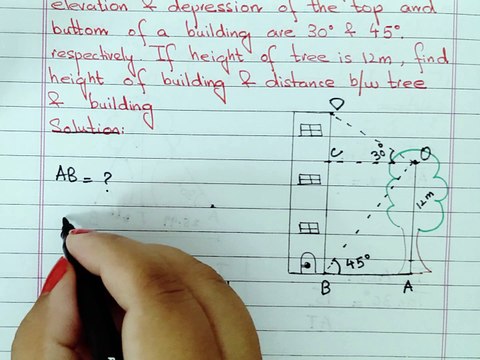 elevation & depression of the top and
buttom of a building are 30° & 45°.
respectively. If height of tree is 12m, find
height of building & distance b/w tree
& building
Solution:
D
C
30°
O
AB = ?
12m
45°
B
A